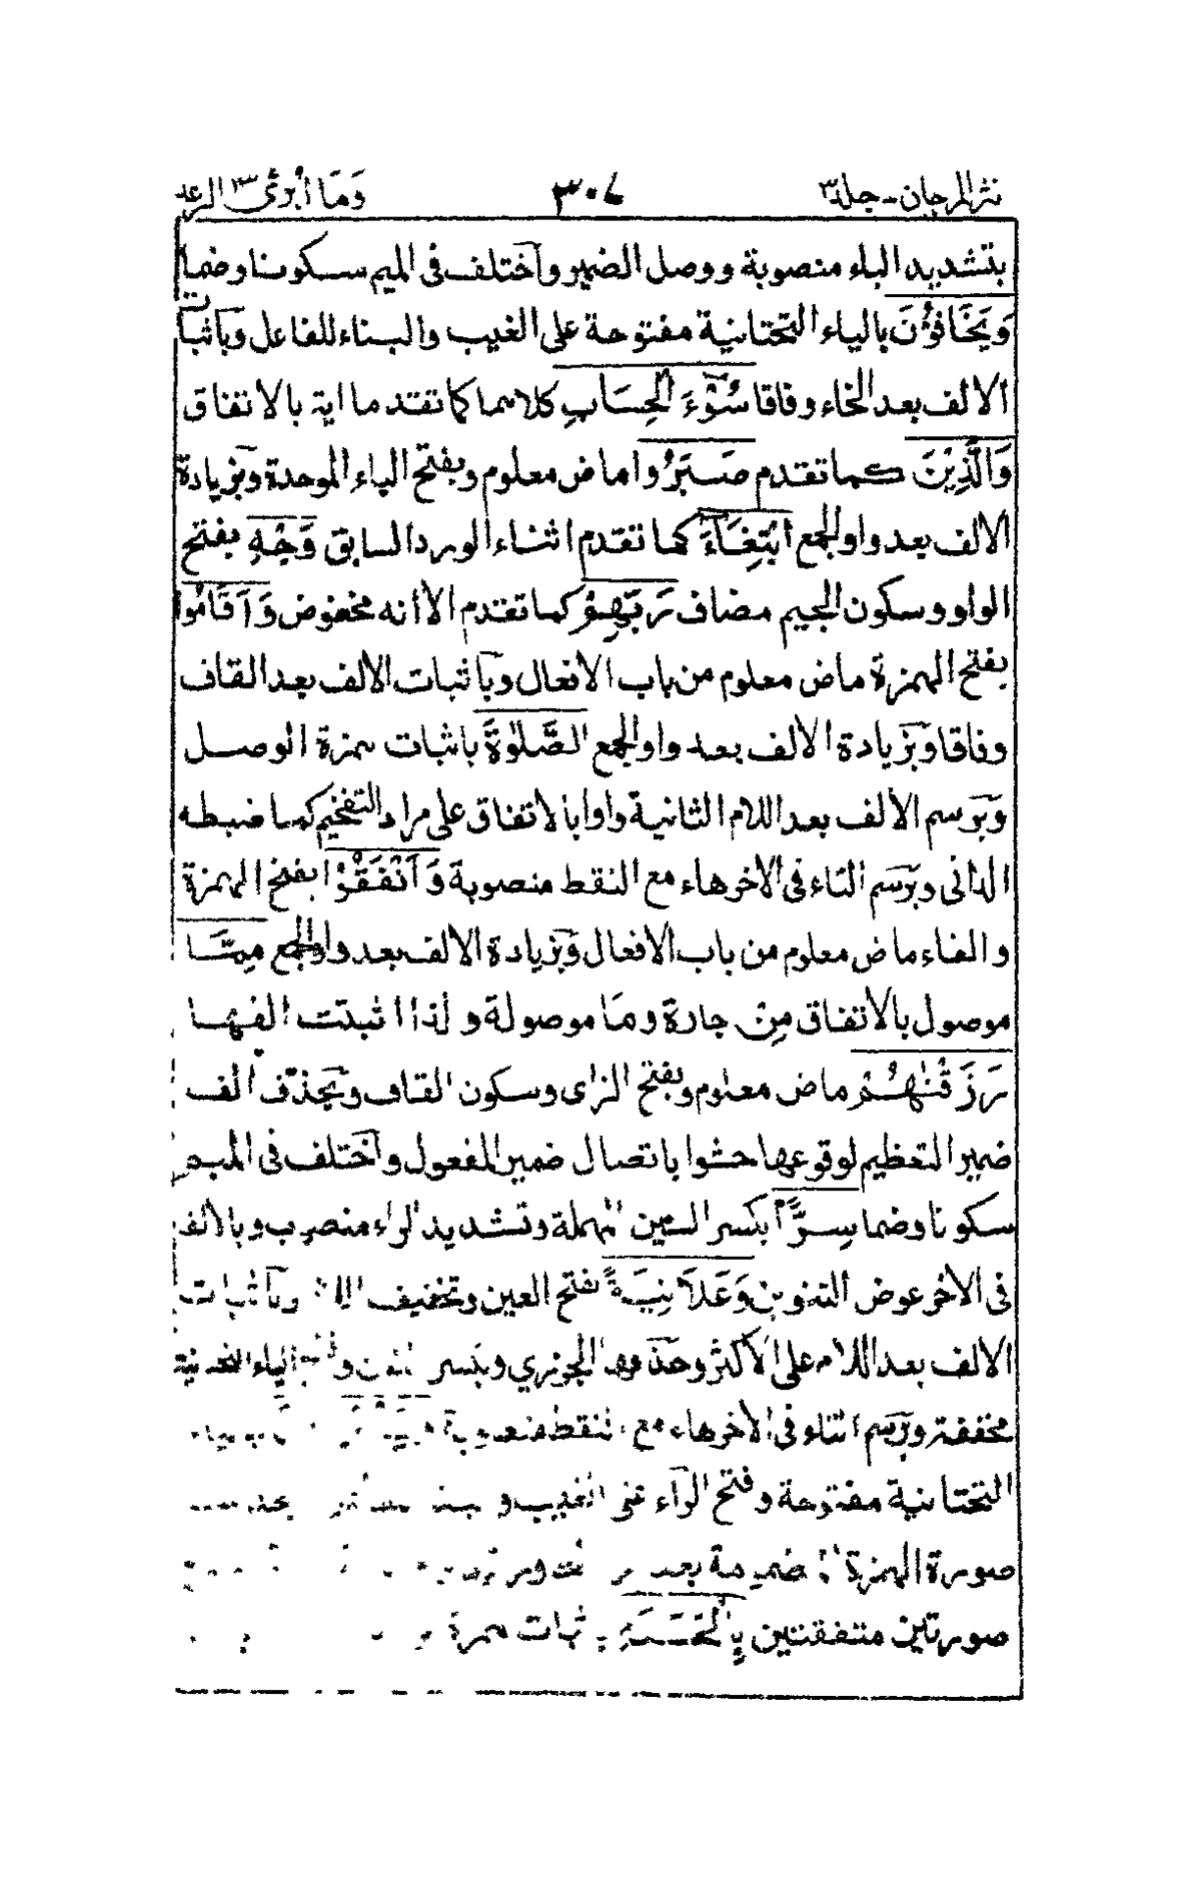 نثر المرجان - جلد ٣ ٣٠٧ وَمَا أُبَرِّئُ ١٣ الرعد
بتشديد الباء منصوبة ووصل الضمير وآختلف فى الميم سكونا وضما
وَيَخَافُوْنَ بالياء التحتانية مفتوحة على الغيب والبناء للفاعل وبآثبات
الالف بعد الخاء وفاقا سُوْٓءَ الْحِسَابِ كلاهما كما تقدما اية بالاتفاق
وَالَّذِيْنَ كما تقدم صَبَرُوا ماض معلوم وبفتح الباء الموحدة وبزيادة
الالف بعد واو الجمع ابْتِغَآءَ كما تقدم اثناء الورد السابق وَجْهِ بفتح
الواو وسكون الجيم مضاف رَبِّهِمْ كما تقدم الا أنه مخفوض وَاَقَامُوا
بفتح الهمزة ماض معلوم من باب الافعال وبآثبات الالف بعد القاف
وفاقا وبزيادة الالف بعد واو الجمع الصَّلٰوةَ باثبات همزة الوصل
وبرسم الالف بعد اللام الثانية واوا بالاتفاق على مراد التفخيم كما ضبطه
الدانى وبرسم التاء فى الاخر هاء مع النقط منصوبة وَاَنْفَقُوْا بفتح الهمزة
والفاء ماض معلوم من باب الافعال وبزيادة الالف بعد واو الجمع مِمَّا
موصول بالاتفاق مِنْ جارة ومَا موصولة ولذا اثبتت الفها
رَزَقْنٰهُمْ ماض معلوم وبفتح الزاى وسكون القاف وبحذف الف
ضمير التعظيم لوقوعها حشوا باتصال ضمير المفعول وآختلف فى الميم
سكونا وضما سِرًّا بكسر السين المهملة وتشديد الراء منصوب وبالالف
فى الاخر عوض التنوين وَعَلَانِيَةً بفتح العين وتخفيف وبآثبات
الالف بعد اللام على الاكثر وحذفها الجزري وبكسر النون الياء التحتانية
مخففة وبرسم التاء فى الاخر هاء مع النقط منصوبة
التحتانية مفتوحة وفتح الرآء على الغيب و
صورة الهمزة المضمومة بعد
صورتين متفقتين بِالْحَسَنَةِ باثبات همزة